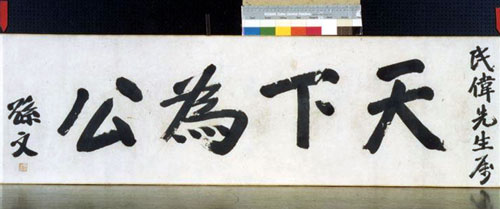 氏偉先生屬
天下為公
孫文